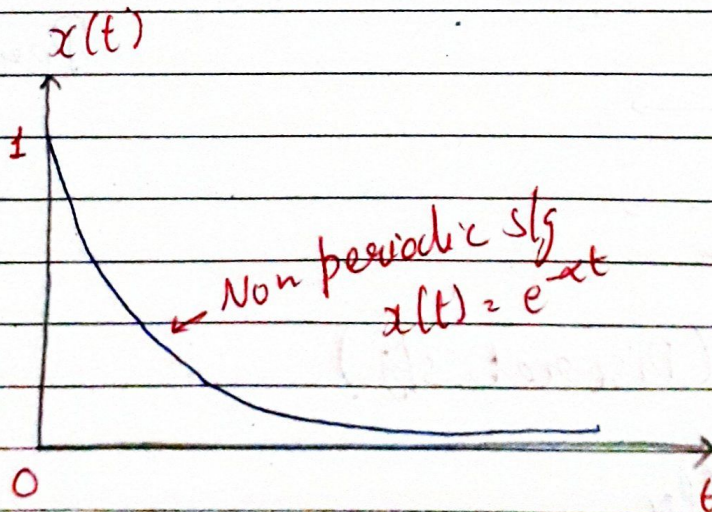 x(t)
1
Non periodic slg
x(t) = e^-αt
0
t